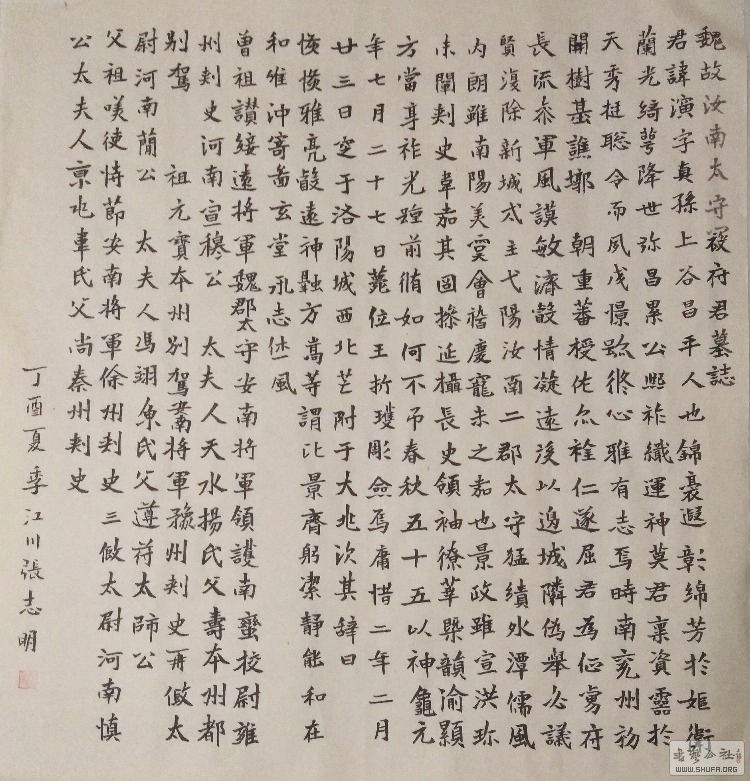 魏故汝南太守寇府君墓誌
君諱演字真孫上谷昌平人也錦裘遐彰綿芳於姬衛
蘭光綺萼降世弥昌累公熙祚纖運神莫君稟資靈於
天秀挺聡令而夙茂憬跡終心雅有志焉時南兖州初
開樹基譙鄴朝重蕃授佐尒裣仁遂屈君為征虏府
長流叅軍風謨敏濟毅情凝遠後以邊城隣偽舉必議
賢復除新城戍主弋陽汝南二郡太守猛績外潭儒風
內朗雖南陽美雯會稽慶寵未之嘉也景政雖宣洪珎
未闡刾史韋嘉其図捺延攝長史領袖僚華槩韻渝顯
方當享祚光踵前脩如何不吊春秋五十五以神龜元
年七月二十七日薨位玉折瓊彫僉焉庸惜二年二月
廿三日窆于洛陽城西北芒附于大兆次其辭曰
悛悛雅亮毅遠神融方嵩等謂比景齊躬潔静能和在
和維沖寄啚玄堂永志休風
曾祖讃綏遠將軍魏郡太守安南將軍領護南蠻校尉雍
州刾史河南宣穆公 太夫人天水揚氏父壽本州都
别駕 祖元寳本州别駕將軍豫州刾史再假太
尉河南蕳公 太夫人馮翊魚氏父遵苻太師公
父祖嘆使持節安南將軍徐州刾史三假太尉河南慎
公太夫人京兆韋氏父尚秦州刾史
丁酉夏季江川張志明
WWW.SHUFA.ORG